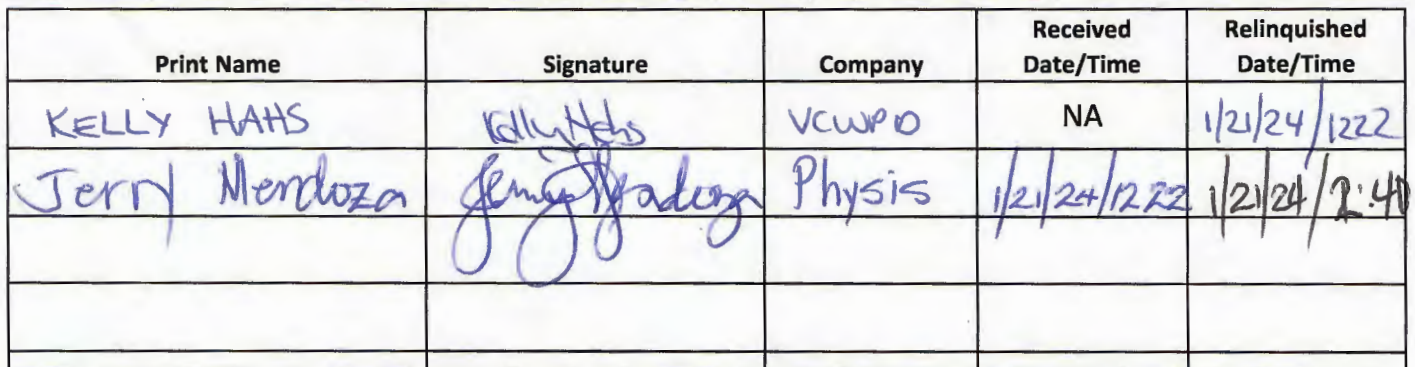 Print Name Signature Company Received Date/Time Relinquished Date/Time
KELLY HAHS Kelly Hahs VCWPD NA 1/21/24/1222
Jerry Mendoza Jerry Mendoza Physis 1/21/24/1222 1/21/24/2:40